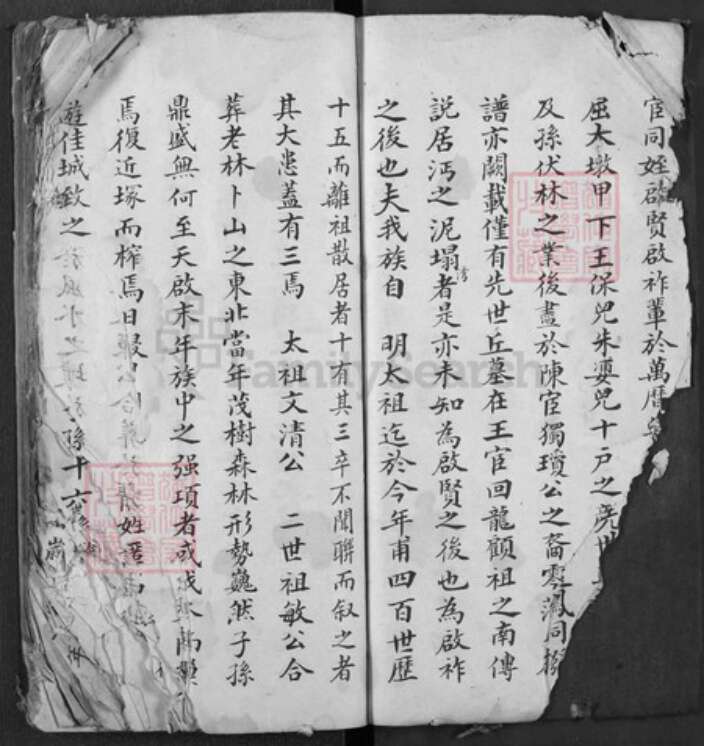 宦同姪啟賢啟祚輩於萬曆
屈大墩甲下王保兒朱要兒十戶之
及孫伏林之業後盡於陳宦獨瓊公之裔零落同
譜亦闕載僅有先世丘墓在王宦回龍顧祖之南傳
說居沔之泥塌灣者是亦未知為啟賢之後也為啟祚
之後也夫我族自 明太祖迄於今年甫四百世歷
十五而離祖散居者十有其三卒不聞聯而叙之者
其大患蓋有三焉 太祖文清公 二世祖敏公合
葬老林卜山之東北當年茂樹森林形勢巍然子孫
鼎盛無何至天啟末年族中之强項者或
焉復近塚而樵焉日 公合 姓
遊佳城致之 孫十六
FamilySearch